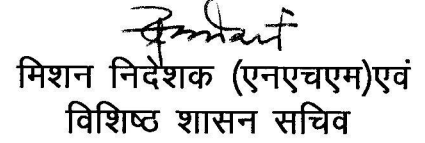 मिशन निदेशक (एनएचएम)एवं
विशिष्ठ शासन सचिव